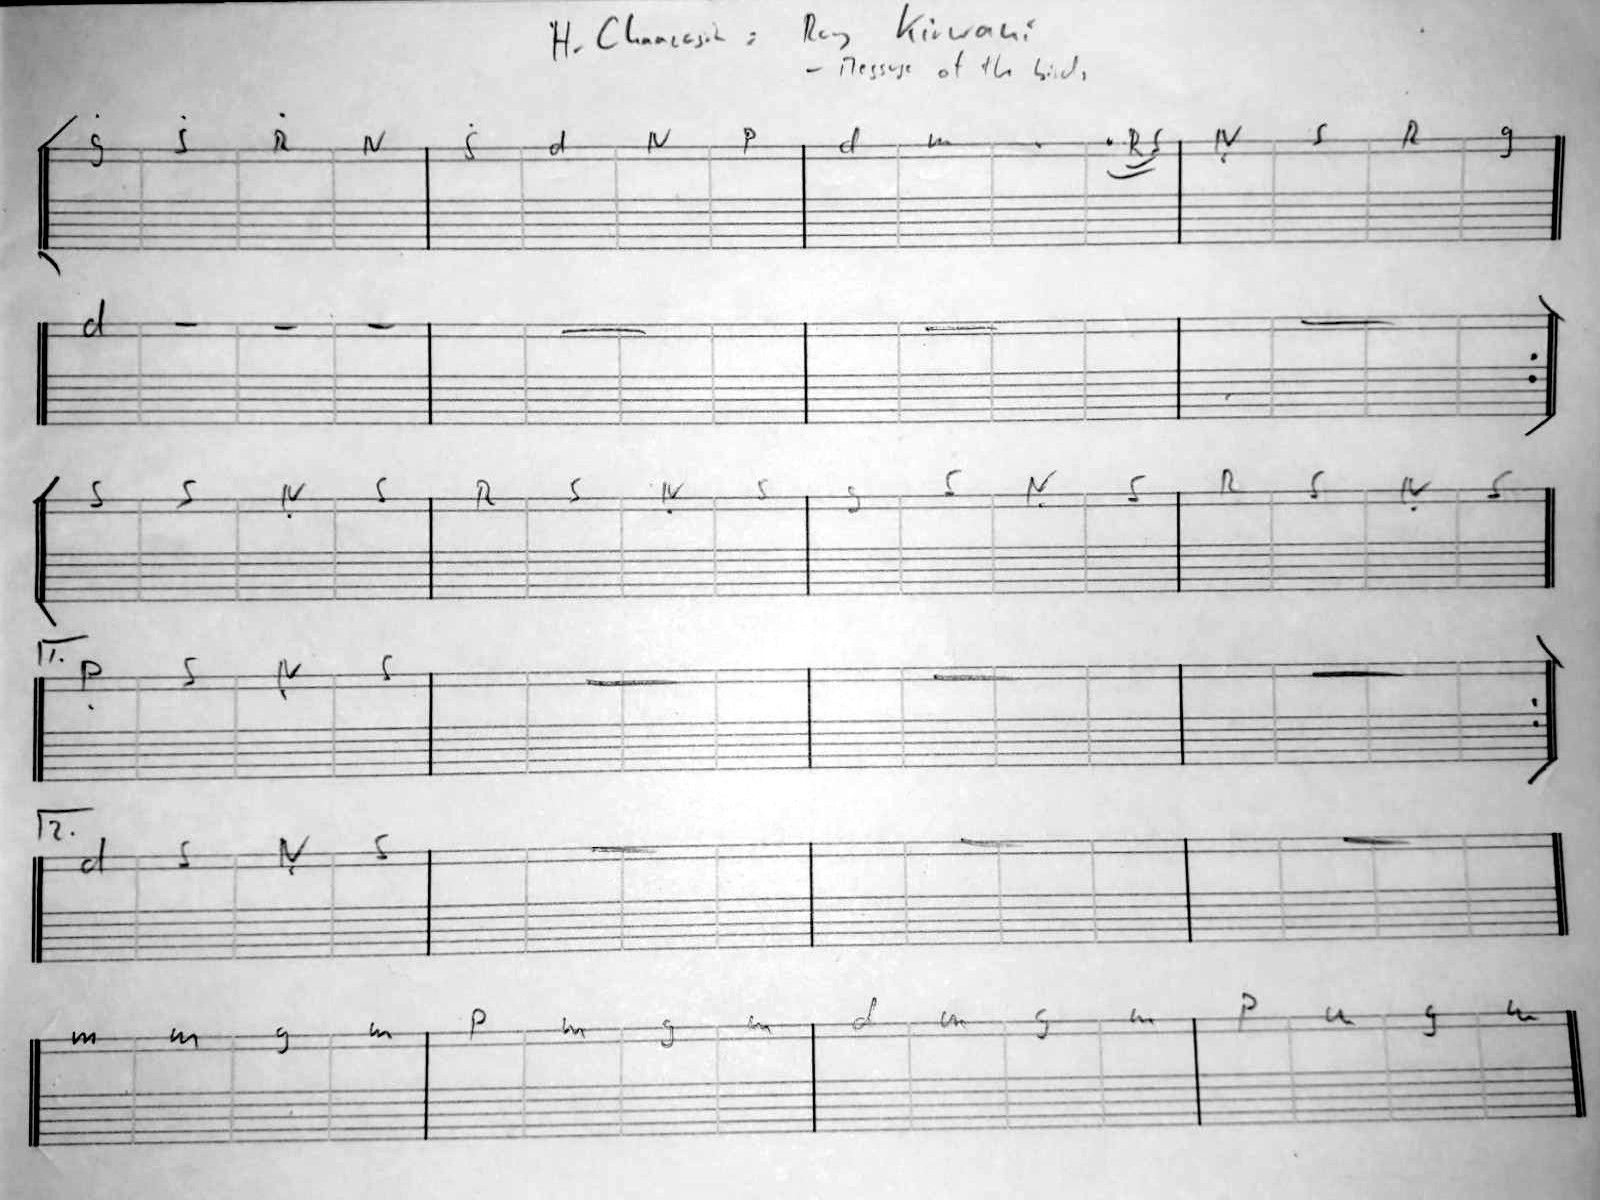 H. Chaurasia : Rag Kirwani
- Message of the birds
ġ Ṡ Ṙ N Ṡ d N P d m - - RS Ṇ S R g
d - - - — — —
S S Ṇ S R S Ṇ S g S Ṇ S R S Ṇ S
1. P̣ S Ṇ S — — —
2. d S Ṇ S — — —
m m g m P m g m d m g m P m g m